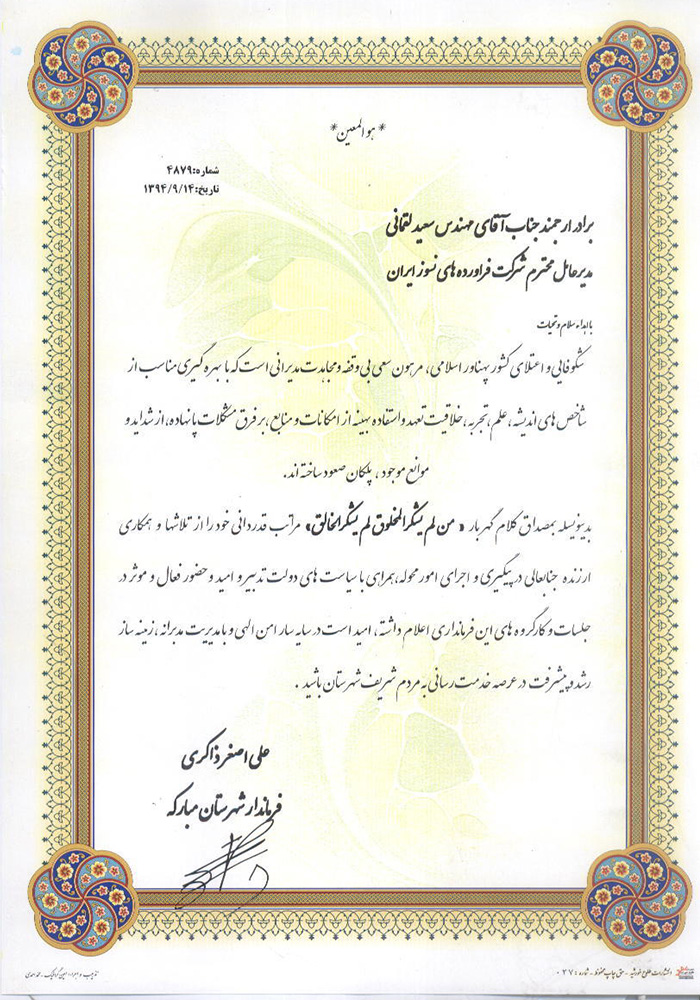 * هو المعین *
شماره: ۴۸۷۹
تاریخ: ۱۳۹۴/۹/۱۴
برادر ارجمند جناب آقای مهندس سعید لقمانی
مدیرعامل محترم شرکت فراورده های نسوز ایران
با اهداء سلام و تحیات
شکوفایی و اعتلای کشور پهناور اسلامی، مرهون سعی بی وقفه و مجاهدت مدیرانی است که با بهره گیری مناسب از
شاخص های اندیشه، علم، تجربه، خلاقیت تعهد و استفاده بهینه از امکانات و منابع، بر فرق مشکلات پا نهاده، از شداید و
موانع موجود، پلکان صعود ساخته اند.
بدینوسیله بمصداق کلام گهربار « من لم یشکر المخلوق لم یشکر الخالق» مراتب قدردانی خود را از تلاشها و همکاری
ارزنده جنابعالی در پیگیری و اجرای امور محوله، همراهی با سیاست های دولت تدبیر و امید و حضور فعال و موثر در
جلسات و کارگروه های این فرمانداری اعلام داشته، امید است در سایه سار امن الهی و با مدیریت مدبرانه، زمینه ساز
رشد و پیشرفت در عرصه خدمت رسانی به مردم شریف شهرستان باشید .
علی اصغر ذاکری
فرماندار شهرستان مبارکه
انتشارات طلوع خورشید - حق چاپ محفوظ - شماره: ۰۲۷